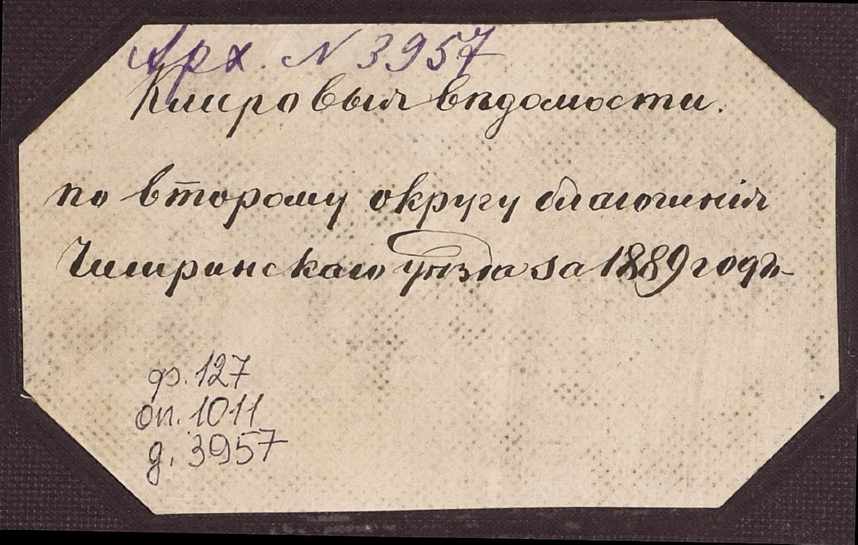 Арх. N 3957
Клировыя вѣдомости.
по второму округу благочинія
Чигиринскаго уѣзда за 1889 годъ
ф. 127
оп. 1011
д. 3957